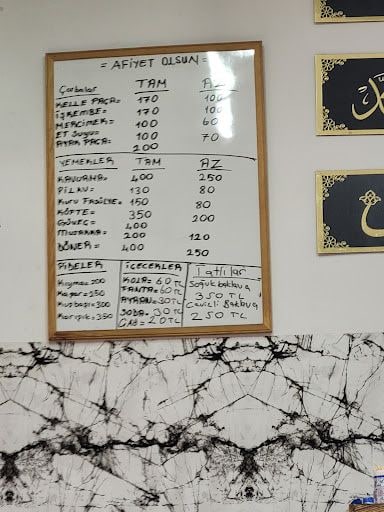 = AFİYET OLSUN =
Çorbalar TAM AZ
KELLE PAÇA= 170 100
İŞKEMBE= 170 100
MERCİMEK= 100 60
ET SUYU= 100 70
AYAK PAÇA= 200
YEMEKLER TAM AZ
KAVURMA= 400 250
PİLAV= 130 80
KURU FASÜLYE= 150 80
KÖFTE= 350 200
GÜVEÇ= 400
MUSAKKA= 200 120
DÖNER= 400 250
PİDELER
Kıyma= 200
Kaşar= 250
Kuşbaşı= 300
Karışık= 350
İÇECEKLER
KOLA= 60 TL
FANTA= 60 TL
AYRAN= 30 TL
SODA= 30 TL
ÇAY= 20 TL
Tatlılar
Soğuk baklava
350 TL
Cevizli Baklava
250 TL